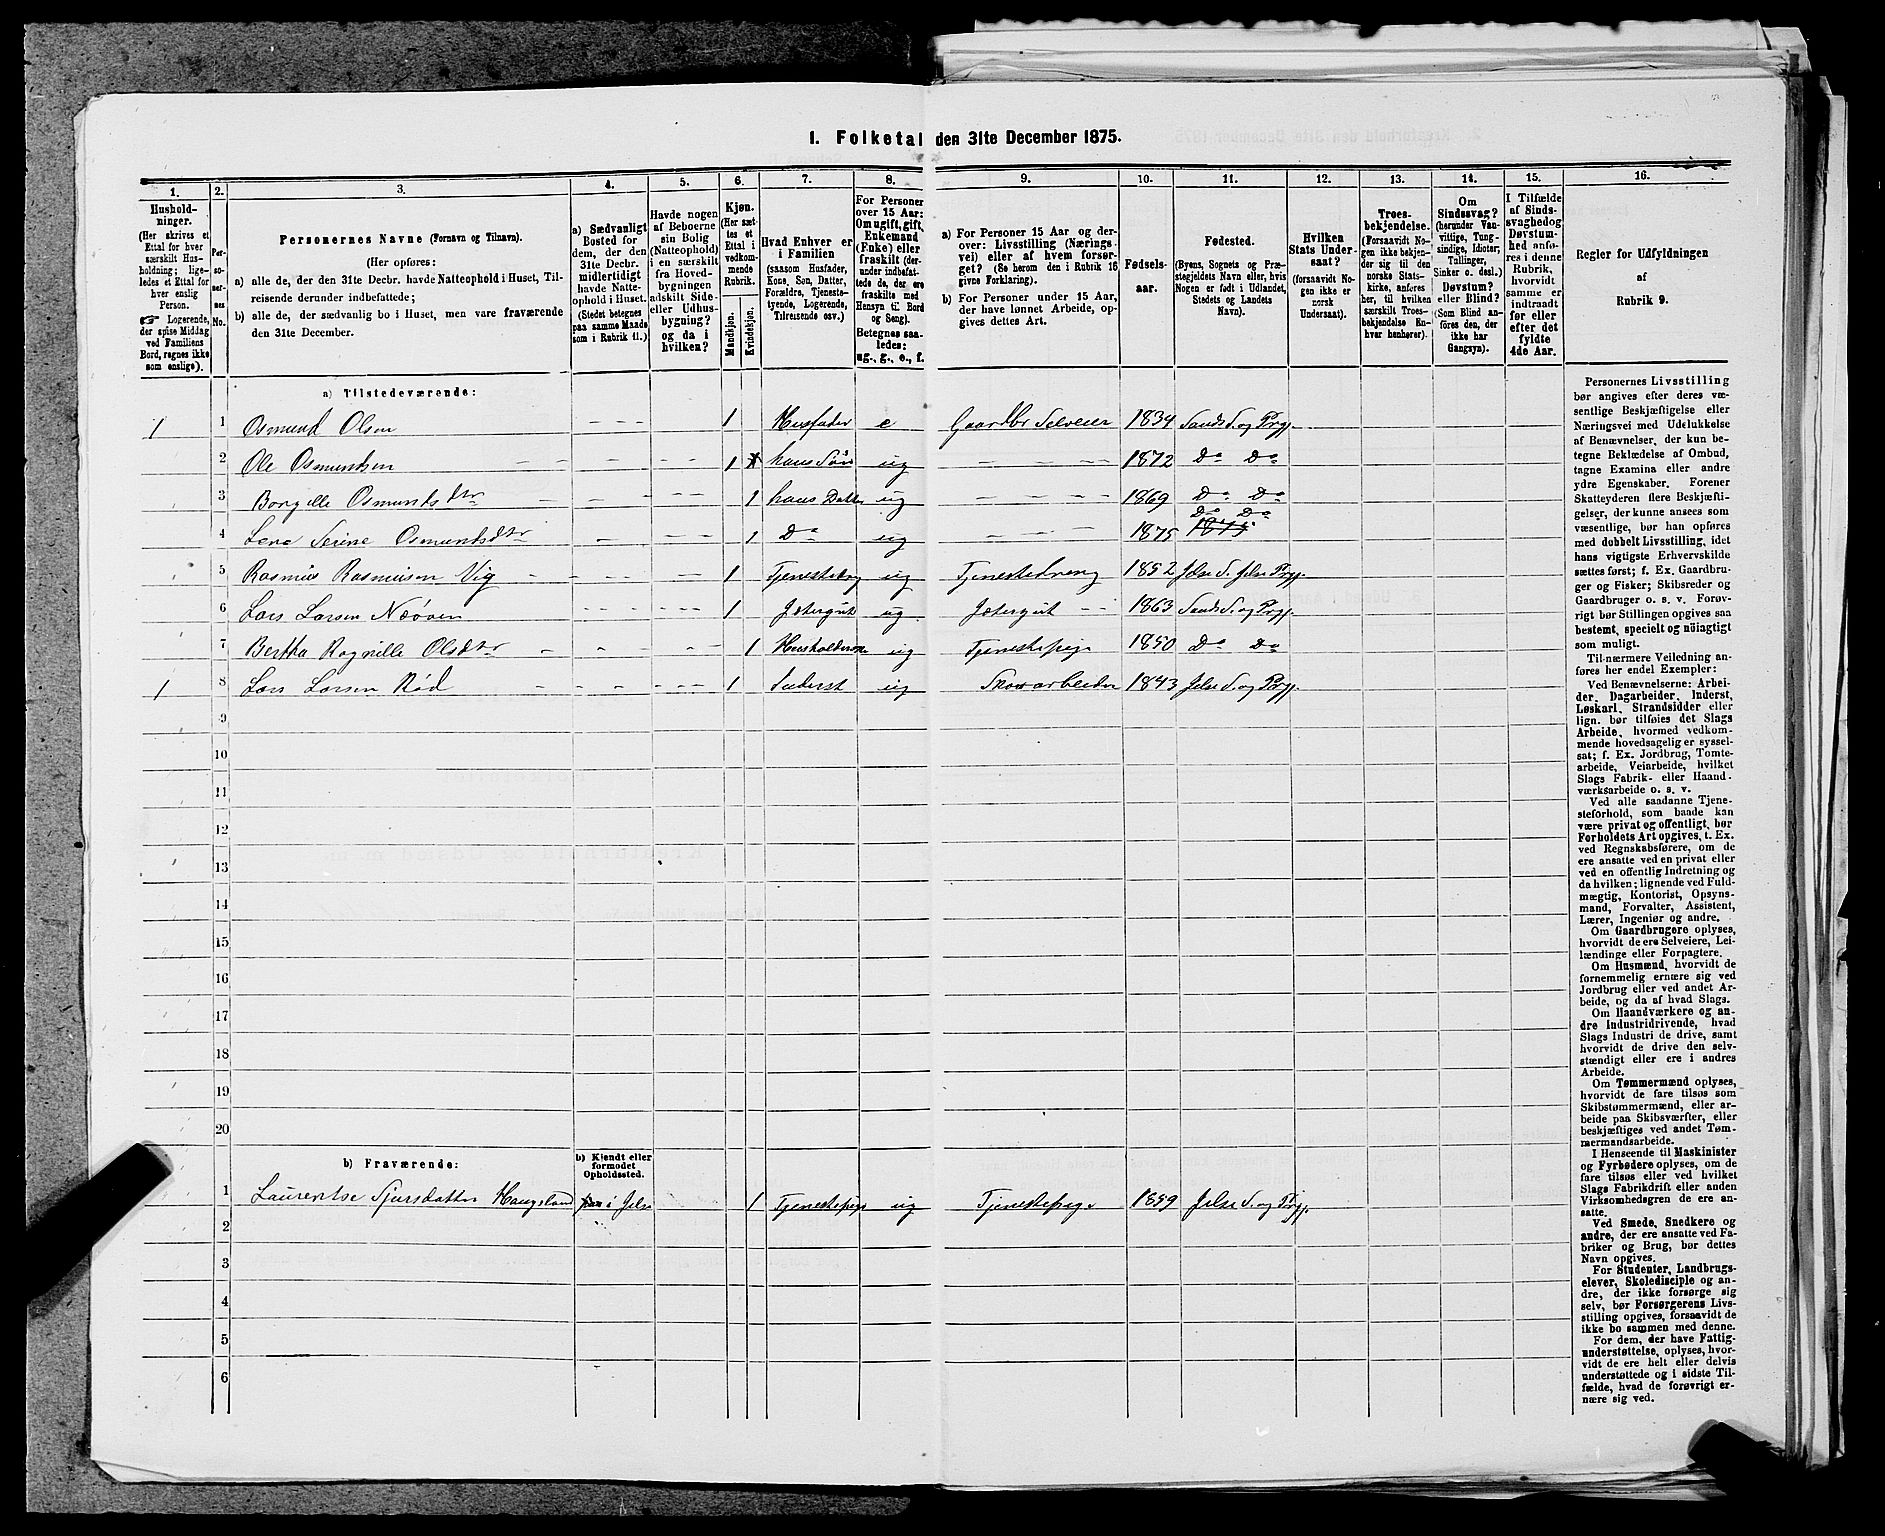 1. Folketal den 31te December 1875.
1. 2. 3. 4. 5. 6. 7. 8. 9. 10. 11. 12. 13. 14. 15. 16.
Husholdninger.
(Her skrives et
Ettal for hver
særskilt Husholdning;
ligeledes et Ettal for
hver enslig
Person.
☞ Logerende,
der spise Middag
ved Familiens
Bord, regnes ikke
som enslige).
Personernes No.
Personernes Navne (Fornavn og Tilnavn).
(Her opføres:
a) alle de, der den 31te Decbr. havde Natteophold i Huset, Tilreisende derunder indbefattede;
b) alle de, der sædvanlig bo i Huset, men vare fraværende
den 31te December.
a) Sædvanligt
Bosted for
dem, der den
31te Decbr.
midlertidigt
havde Natteophold i Huset.
(Stedet betegnes
paa samme Maade
som i Rubrik 11.)
Havde nogen
af Beboerne
sin Bolig
(Natteophold)
i en særskilt
fra Hovedbygningen
adskilt Side-
eller Udhusbygning?
og da i
hvilken?
Kjøn.
(Her sættes et
Ettal i
vedkommende
Rubrik.
Mandkjøn.
Kvindekjøn.
Hvad Enhver er
i Familien
(saasom Husfader,
Kone, Søn, Datter,
Forældre, Tjenestetyende, Logerende,
Tilreisende osv.)
For Personer
over 15 Aar:
Om ugift, gift,
Enkemand
(Enke) eller
fraskilt (derunder indbefattede de, der ere
fraskilte med
Hensyn til Bord
og Seng).
Betegnes saaledes:
ug., g., e., f.
a) For Personer 15 Aar og derover: Livsstilling (Næringsvei) eller af hvem forsørget? (Se herom den i Rubrik 16
givne Forklaring).
b) For Personer under 15 Aar,
der have lønnet Arbeide, opgives dettes Art.
Fødselsaar.
Fødested.
(Byens, Sognets og Præstegjeldets Navn eller, hvis
Nogen er født i Udlandet,
Stedets og Landets
Navn).
Hvilken
Stats Undersaat?
(forsaavidt Nogen ikke er
norsk
Undersaat).
Troesbekjendelse.
(Forsaavidt Nogen ikke bekjender sig til den
norske Statskirke, anføres
her, til hvilken
særskilt Troesbekjendelse Enhver henhører).
Om
Sindssvag?
(herunder Vanvittige, Tungsindige, Idioter,
Tallinger,
Sinker o. desl.)
Døvstum?
eller Blind?
(Som Blind anføres den, der
ikke har
Gangsyn).
I Tilfælde
af Sindssvaghed og
Døvstumhed anføres i denne
Rubrik,
hvorvidt
samme er
indtraadt
før eller
efter det
fyldte
4de Aar.
Regler for Udfyldningen
af
Rubrik 9.
a) Tilstedeværende:
1 1 Osmund Olsen 1 Husfader e Gaardbr Selveier 1834 Sands S. og Prgj.
2 Ole Osmundsen 1 hans Søn ug 1872 Do Do
3 Borgille Osmundsdtr 1 hans Datter ug 1869 Do Do
4 Lene Serine Osmundsdtr 1 Do ug 1875 Do Do
5 Rasmus Rasmusen Vig 1 Tjenestedrg ug Tjenestedreng 1852 Jelse S. Jelse Prgj.
6 Lars Larsen 1 Jætergut ug Jætergut 1863 Sands S. og Prgj.
7 Bertha Ragnille Olsdtr 1 Husholderske ug Tjenestepige 1850 Do Do
1 8 Lars Larsen Rød 1 Inderst ug Skoarbeider 1843 Jelse S. og Prgj.
9
10
11
12
13
14
15
16
17
18
19
20
b) Fraværende:
b) Kjendt eller
formodet
Opholdssted.
1 Laurentse Sjursdatter Haugsland i Jelse 1 Tjenestepige ug Tjenestepige 1859 Jelse S. og Prgj.
2
3
4
5
6
Personernes Livsstilling
bør angives efter deres væsentlige Beskjæftigelse eller
Næringsvei med Udelukkelse
af Benævnelser, der kun betegne Beklædelse af Ombud,
tagne Examina eller andre
ydre Egenskaber. Forener
Skatteyderen flere Beskjæftigelser, der kunne ansees som
væsentlige, bør han opføres
med dobbelt Livsstilling, idet
hans vigtigste Erhvervskilde
sættes først; f. Ex. Gaardbruger og Fisker; Skibsreder og
Gaardbruger o. s. v. Forøvrigt bør Stillingen opgives saa
bestemt, specielt og nøiagtigt
som muligt.
Til nærmere Veiledning anføres her endel Exempler:
Ved Benævnelserne: Arbeider, Dagarbeider, Inderst,
Løskarl, Strandsidder eller
lign. bør tilføies det Slags
Arbeide, hvormed vedkommende hovedsagelig er sysselsat; f. Ex. Jordbrug, Tomtearbeide, Veiarbeide, hvilket
Slags Fabrik- eller Haandværksarbeide o. s. v.
Ved alle saadanne Tjenesteforhold, som baade kan
være privat og offentligt, bør
Forholdets Art opgives, t. Ex.
ved Regnskabsførere, om de
ere ansatte ved en privat eller
ved en offentlig Indretning og
da hvilken; lignende ved Fuldmægtig, Kontorist, Opsynsmand, Forvalter, Assistent,
Lærer, Ingeniør og andre.
Om Gaardbrugere oplyses,
hvorvidt de ere Selveiere, Leilændinge eller Forpagtere.
Om Husmænd, hvorvidt de
fornemmelig ernære sig ved
Jordbrug eller ved andet Arbeide, og da af hvad Slags.
Om Haandværkere og andre Industridrivende, hvad
Slags Industri de drive, samt
hvorvidt de drive den selvstændigt eller ere i andres
Arbeide.
Om Tømmermænd oplyses,
hvorvidt de fare tilsøs som
Skibstømmermænd, eller arbeide paa Skibsværfter, eller
beskjæftiges ved andet Tømmermandsarbeide.
I Henseende til Maskinister
og Fyrbødere oplyses, om de
fare tilsøs eller ved hvilket
Slags Fabrikdrift eller anden
Virksomhedsgren de ere ansatte.
Ved Smede, Snedkere og
andre, der ere ansatte ved Fabriker og Brug, bør dettes
Navn opgives.
For Studenter, Landbrugselever, Skoledisciple og andre, der ikke forsørge sig
selv, bør Forsørgerens Livsstilling opgives, forsaavidt de
ikke bo sammen med denne.
For dem, der have Fattigunderstøttelse, oplyses, hvorvidt de ere helt eller delvis
understøttede og i sidste Tilfælde, hvad de forøvrigt ernære sig ved.